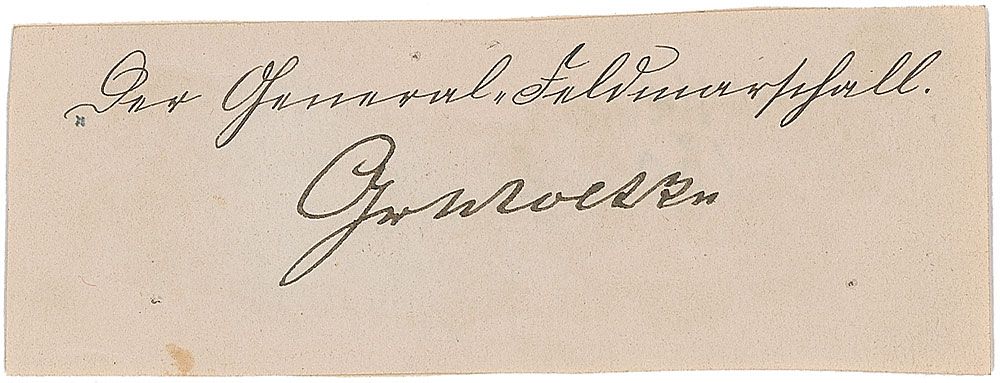 Der General-Feldmarschall.
Gr Moltke